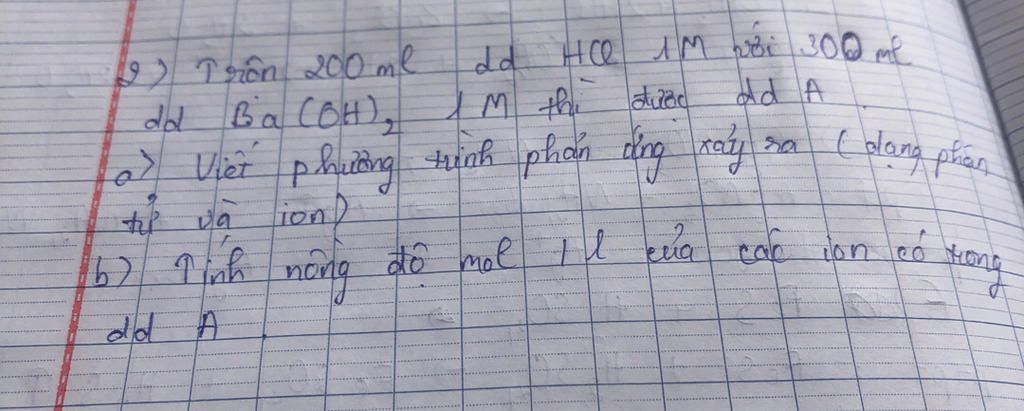 2) Trộn 200 ml dd HCl 1M với 300 ml
dd Ba(OH)₂ 1M thì được dd A.
a) Viết phương trình phản ứng xảy ra (dạng phân
tử và ion)
b) Tính nồng độ mol / l của các ion có trong
dd A.